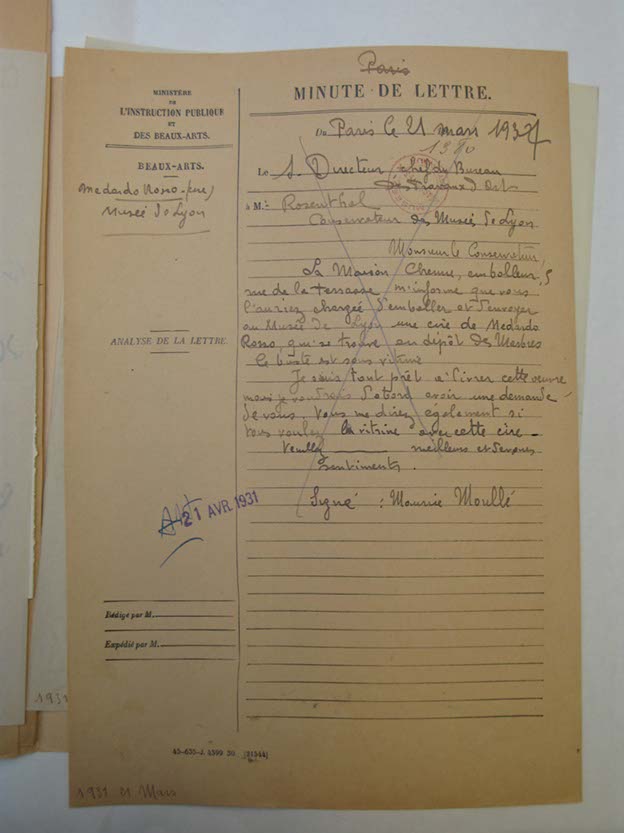 Paris
MINUTE DE LETTRE.
MINISTÈRE
DE
L'INSTRUCTION PUBLIQUE
ET
DES BEAUX-ARTS.
BEAUX-ARTS.
Medardo Rosso
Musée de Lyon
ANALYSE DE LA LETTRE.
Du Paris le 21 mars 193
Le S. Directeur chef du Bureau
des Travaux d'Art
à M. Rosenthal
Conservateur des Musées de Lyon
Monsieur le Conservateur,
La Maison Chenue, emballeur, 5
rue de la terrasse m'informe que vous
l'auriez chargée d'emballer et d'envoyer
au Musée de Lyon une cire de Medardo
Rosso, qui se trouve au dépôt des Marbres
Ce buste est sous vitrine
Je suis tout prêt à livrer cette oeuvre
mais je voudrais d'abord avoir une demande
de vous. Vous me direz également si
vous voulez la vitrine avec cette cire.
Veuillez meilleurs et dévoués
sentiments.
Signé : Maurice Moullé
21 AVR. 1931
Rédigé par M.
Expédié par M.
1931
1931 21 Mars